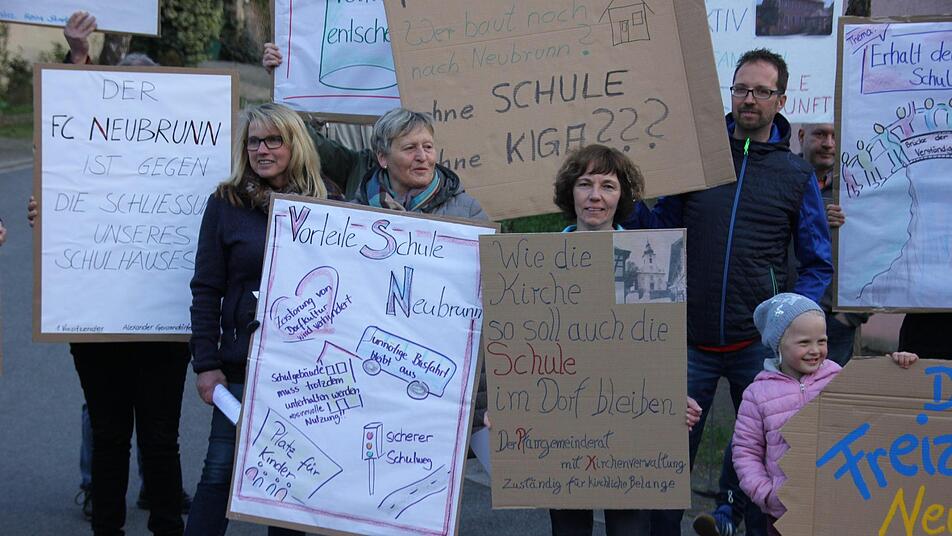 DER
FC NEUBRUNN
IST GEGEN
DIE SCHLIESSU
UNSERES
SCHULHAUSES
1 Vorsitzender
entsche
Wer baut noch
nach Neubrunn?
ohne SCHULE
ohne KIGA???
UNFT
Thema:
Erhalt der
Schul
Brücke der
Verständig
Vorteile Schule
Neubrunn
Zerstörung von
Dorfkultur
wird verhindert
unnötige Busfahrt
bleibt aus
Schulgebäude
muss trotzdem
unterhalten werden
sinnvolle
Nutzung!!
Platz für
Kinder
sicherer
Schulweg
Wie die
Kirche
so soll auch die
Schule
im Dorf bleiben
Der Pfarrgemeinderat
mit Kirchenverwaltung
Zuständig für kirchliche Belange
D
Freiz
Ne